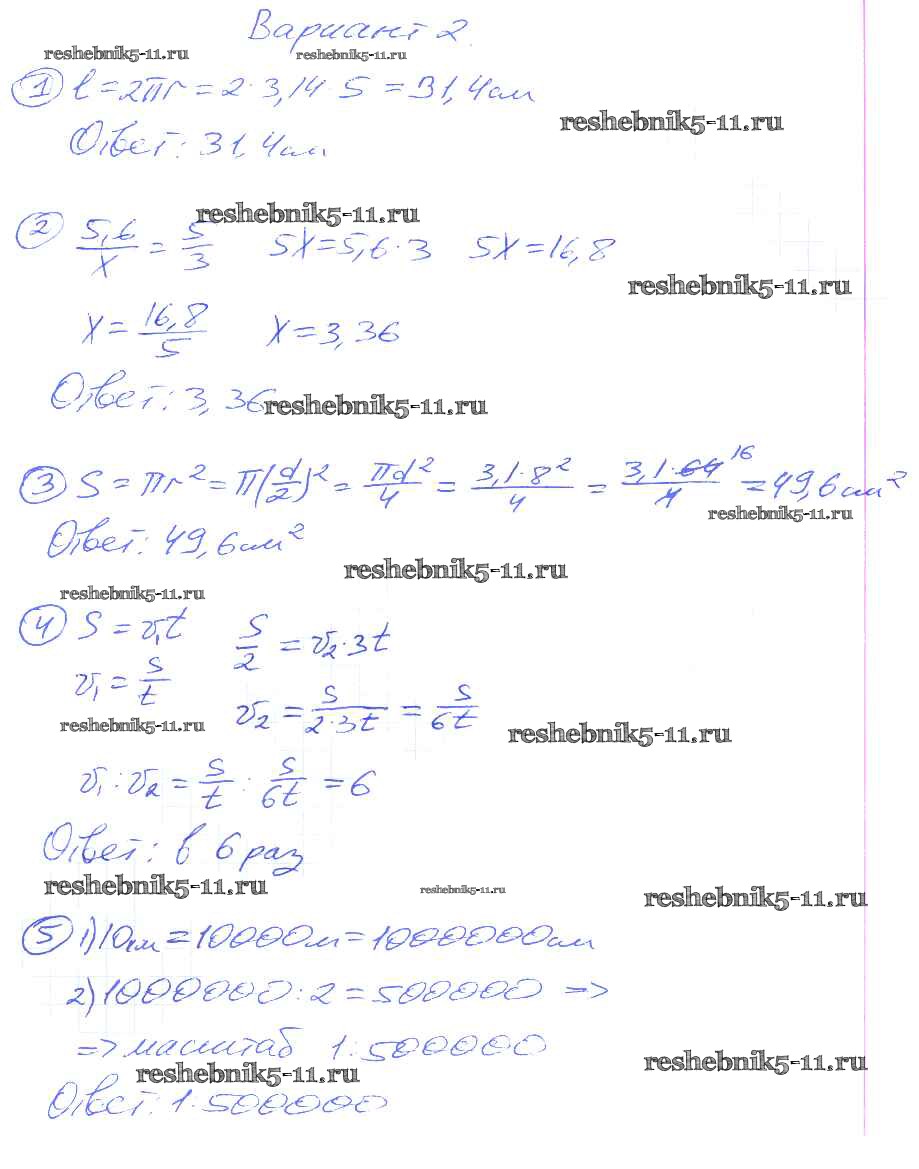 Вариант 2.
reshebnik5-11.ru reshebnik5-11.ru
1 l = 2πr = 2·3,14·5 = 31,4см
reshebnik5-11.ru
Ответ: 31,4см
reshebnik5-11.ru
2 5,6/x = 5/3 5x = 5,6·3 5x = 16,8
reshebnik5-11.ru
x = 16,8/5 x = 3,36
Ответ: 3,36
reshebnik5-11.ru
3 S = πr² = π(d/2)² = πd²/4 = 3,1·8²/4 = 3,1·64 16/4 = 49,6см²
reshebnik5-11.ru
Ответ: 49,6см²
reshebnik5-11.ru
reshebnik5-11.ru
4 S = v₁t S/2 = v₂·3t
v₁ = S/t v₂ = S/2·3t = S/6t
reshebnik5-11.ru reshebnik5-11.ru
v₁ : v₂ = S/t : S/6t = 6
Ответ: в 6 раз
reshebnik5-11.ru reshebnik5-11.ru reshebnik5-11.ru
5 1) 10км = 10000м = 1000000см
2) 1000000 : 2 = 500000 =>
=> масштаб 1:500000
reshebnik5-11.ru reshebnik5-11.ru
Ответ: 1:500000